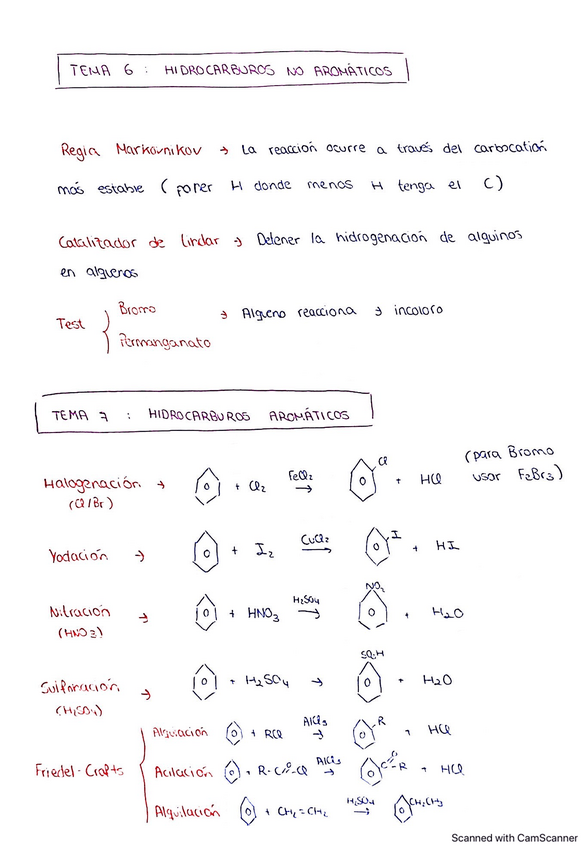 TEMA 6 : HIDROCARBUROS NO AROMÁTICOS
Regla Markovnikov → La reacción ocurre a través del carbocatión
más estable ( poner H donde menos H tenga el C )
Catalizador de Lindar → Detener la hidrogenación de alquinos
en alquenos
Test } Bromo → Alqueno reacciona → incoloro
Permanganato
TEMA 7 : HIDROCARBUROS AROMÁTICOS
Halogenación → + Cl2 FeCl2 → Cl + HCl (para Bromo
(Cl/Br) usar FeBr3)
Yodación → + I2 CuCl2 → I + HI
Nitración → + HNO3 H2SO4 → NO2 + H2O
(HNO3)
Sulfonación → + H2SO4 → SO3H + H2O
(H2SO4)
Alquilación + RCl AlCl3 → R + HCl
Friedel-Crafts { Acilación + R-C=O-Cl AlCl3 → C=O-R + HCl
Alquilación + CH2=CH2 H2SO4 → CH2CH3
Scanned with CamScanner